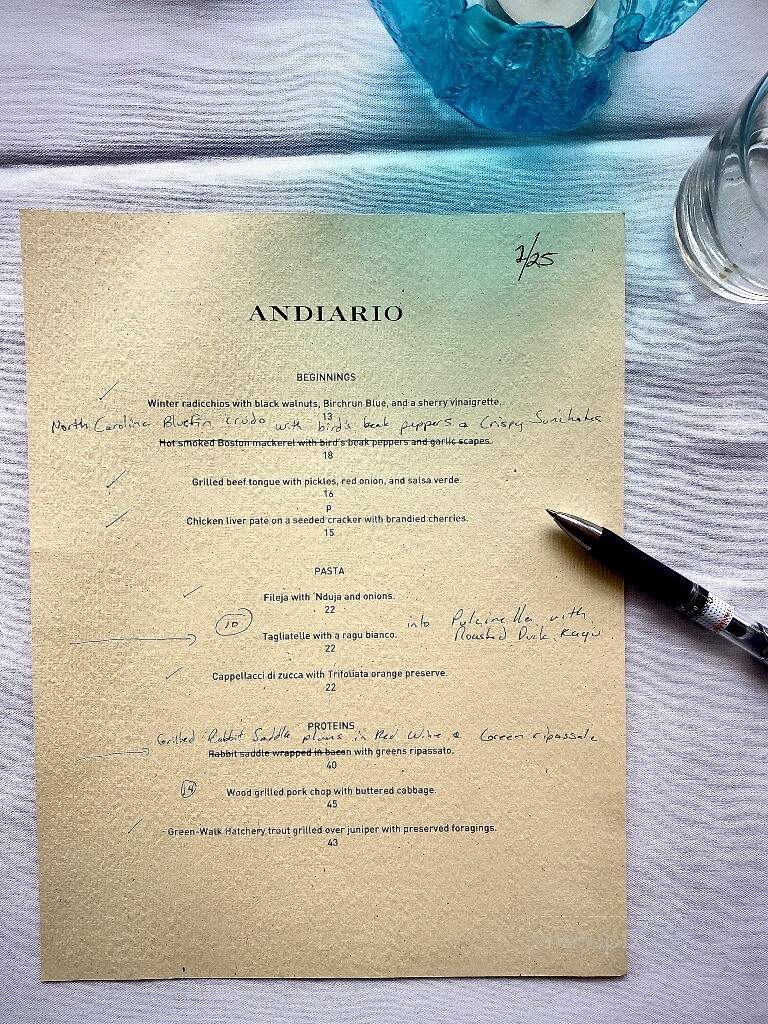 2/25
ANDIARIO
BEGINNINGS
Winter radicchios with black walnuts, Birchrun Blue, and a sherry vinaigrette.
13
North Carolina Bluefin crudo with bird's beak peppers & Crispy Sunchokes
Hot smoked Boston mackerel with bird's beak peppers and garlic scapes.
18
Grilled beef tongue with pickles, red onion, and salsa verde.
16
p
Chicken liver pate on a seeded cracker with brandied cherries.
15
PASTA
Fileja with 'Nduja and onions.
22
10
into Pulcinella with
Tagliatelle with a ragu bianco.
Roasted Duck Ragu
22
Cappellacci di zucca with Trifoliata orange preserve.
22
PROTEINS
Grilled Rabbit Saddle plums in Red Wine & Green ripassato
Rabbit saddle wrapped in bacon with greens ripassato.
40
14
Wood grilled pork chop with buttered cabbage.
45
Green-Walk Hatchery trout grilled over juniper with preserved foragings.
43